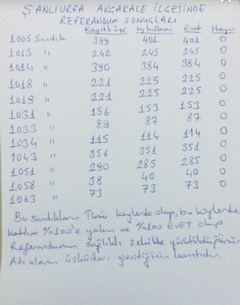 ŞANLIURFA AKÇAKALE İLÇESİNDE
REFERANDUM SONUÇLARI
Kayıtlı Seç. oy kullanan Evet Hayır
1005 Sandık 399 401 401 0
1013 " 242 245 245 0
1014 " 390 384 384 0
1018 " 221 225 225 0
1019 " 221 225 225 0
1031 " 156 153 153 0
1033 " 89 87 87 0
1034 " 115 114 114 0
1043 " 356 351 351 0
1051 " 290 285 285 0
1058 " 38 40 40 0
1063 " 73 73 73 0
Bu Sandıkların Tümü köylerde olup, bu köylerde
katılım %100'e yakın ve %100 EVET olup
Referandumun sağlıklı şekilde yürütüldüğünün
Atı alanın Üsküdarı geçtiğinin kanıtıdır.